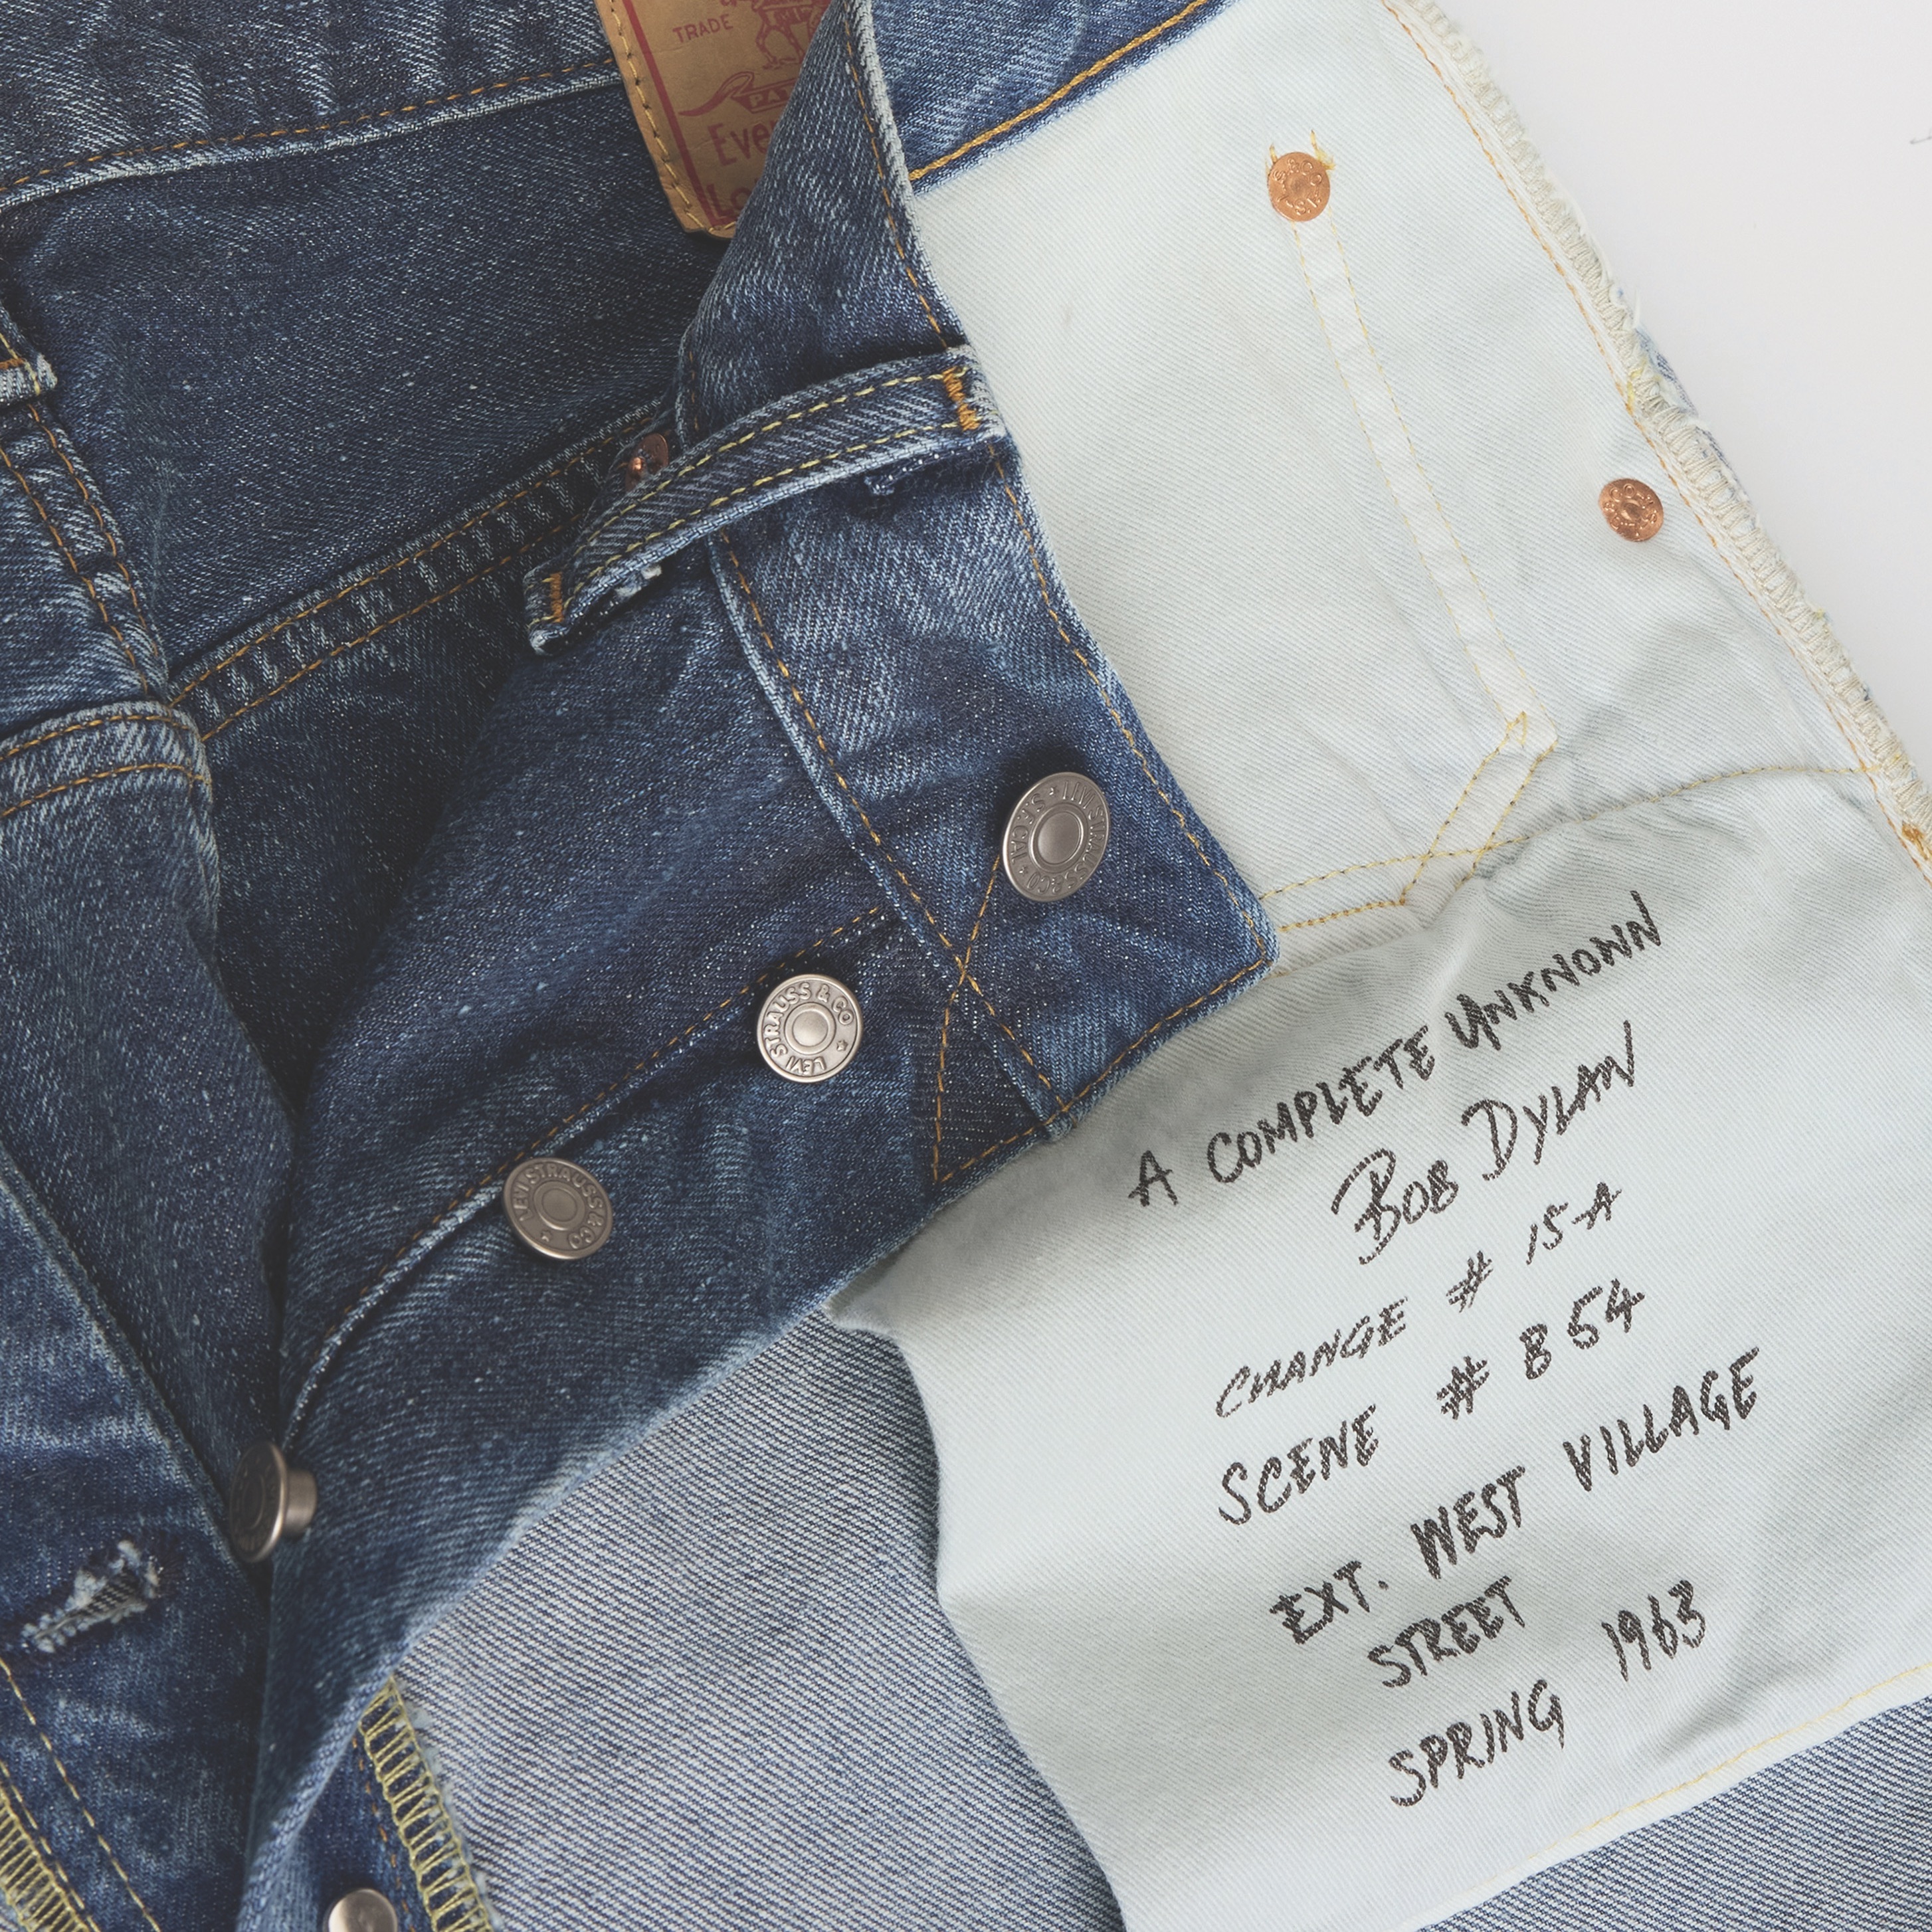 TRADE
Eve
A COMPLETE UNKNOWN
BOB DYLAN
CHANGE # 15-A
SCENE # B 54
EXT. WEST VILLAGE
STREET
SPRING 1963
LEVI STRAUSS & CO
LEVI STRAUSS & CO
LEVI STRAUSS & CO
S.F. CAL